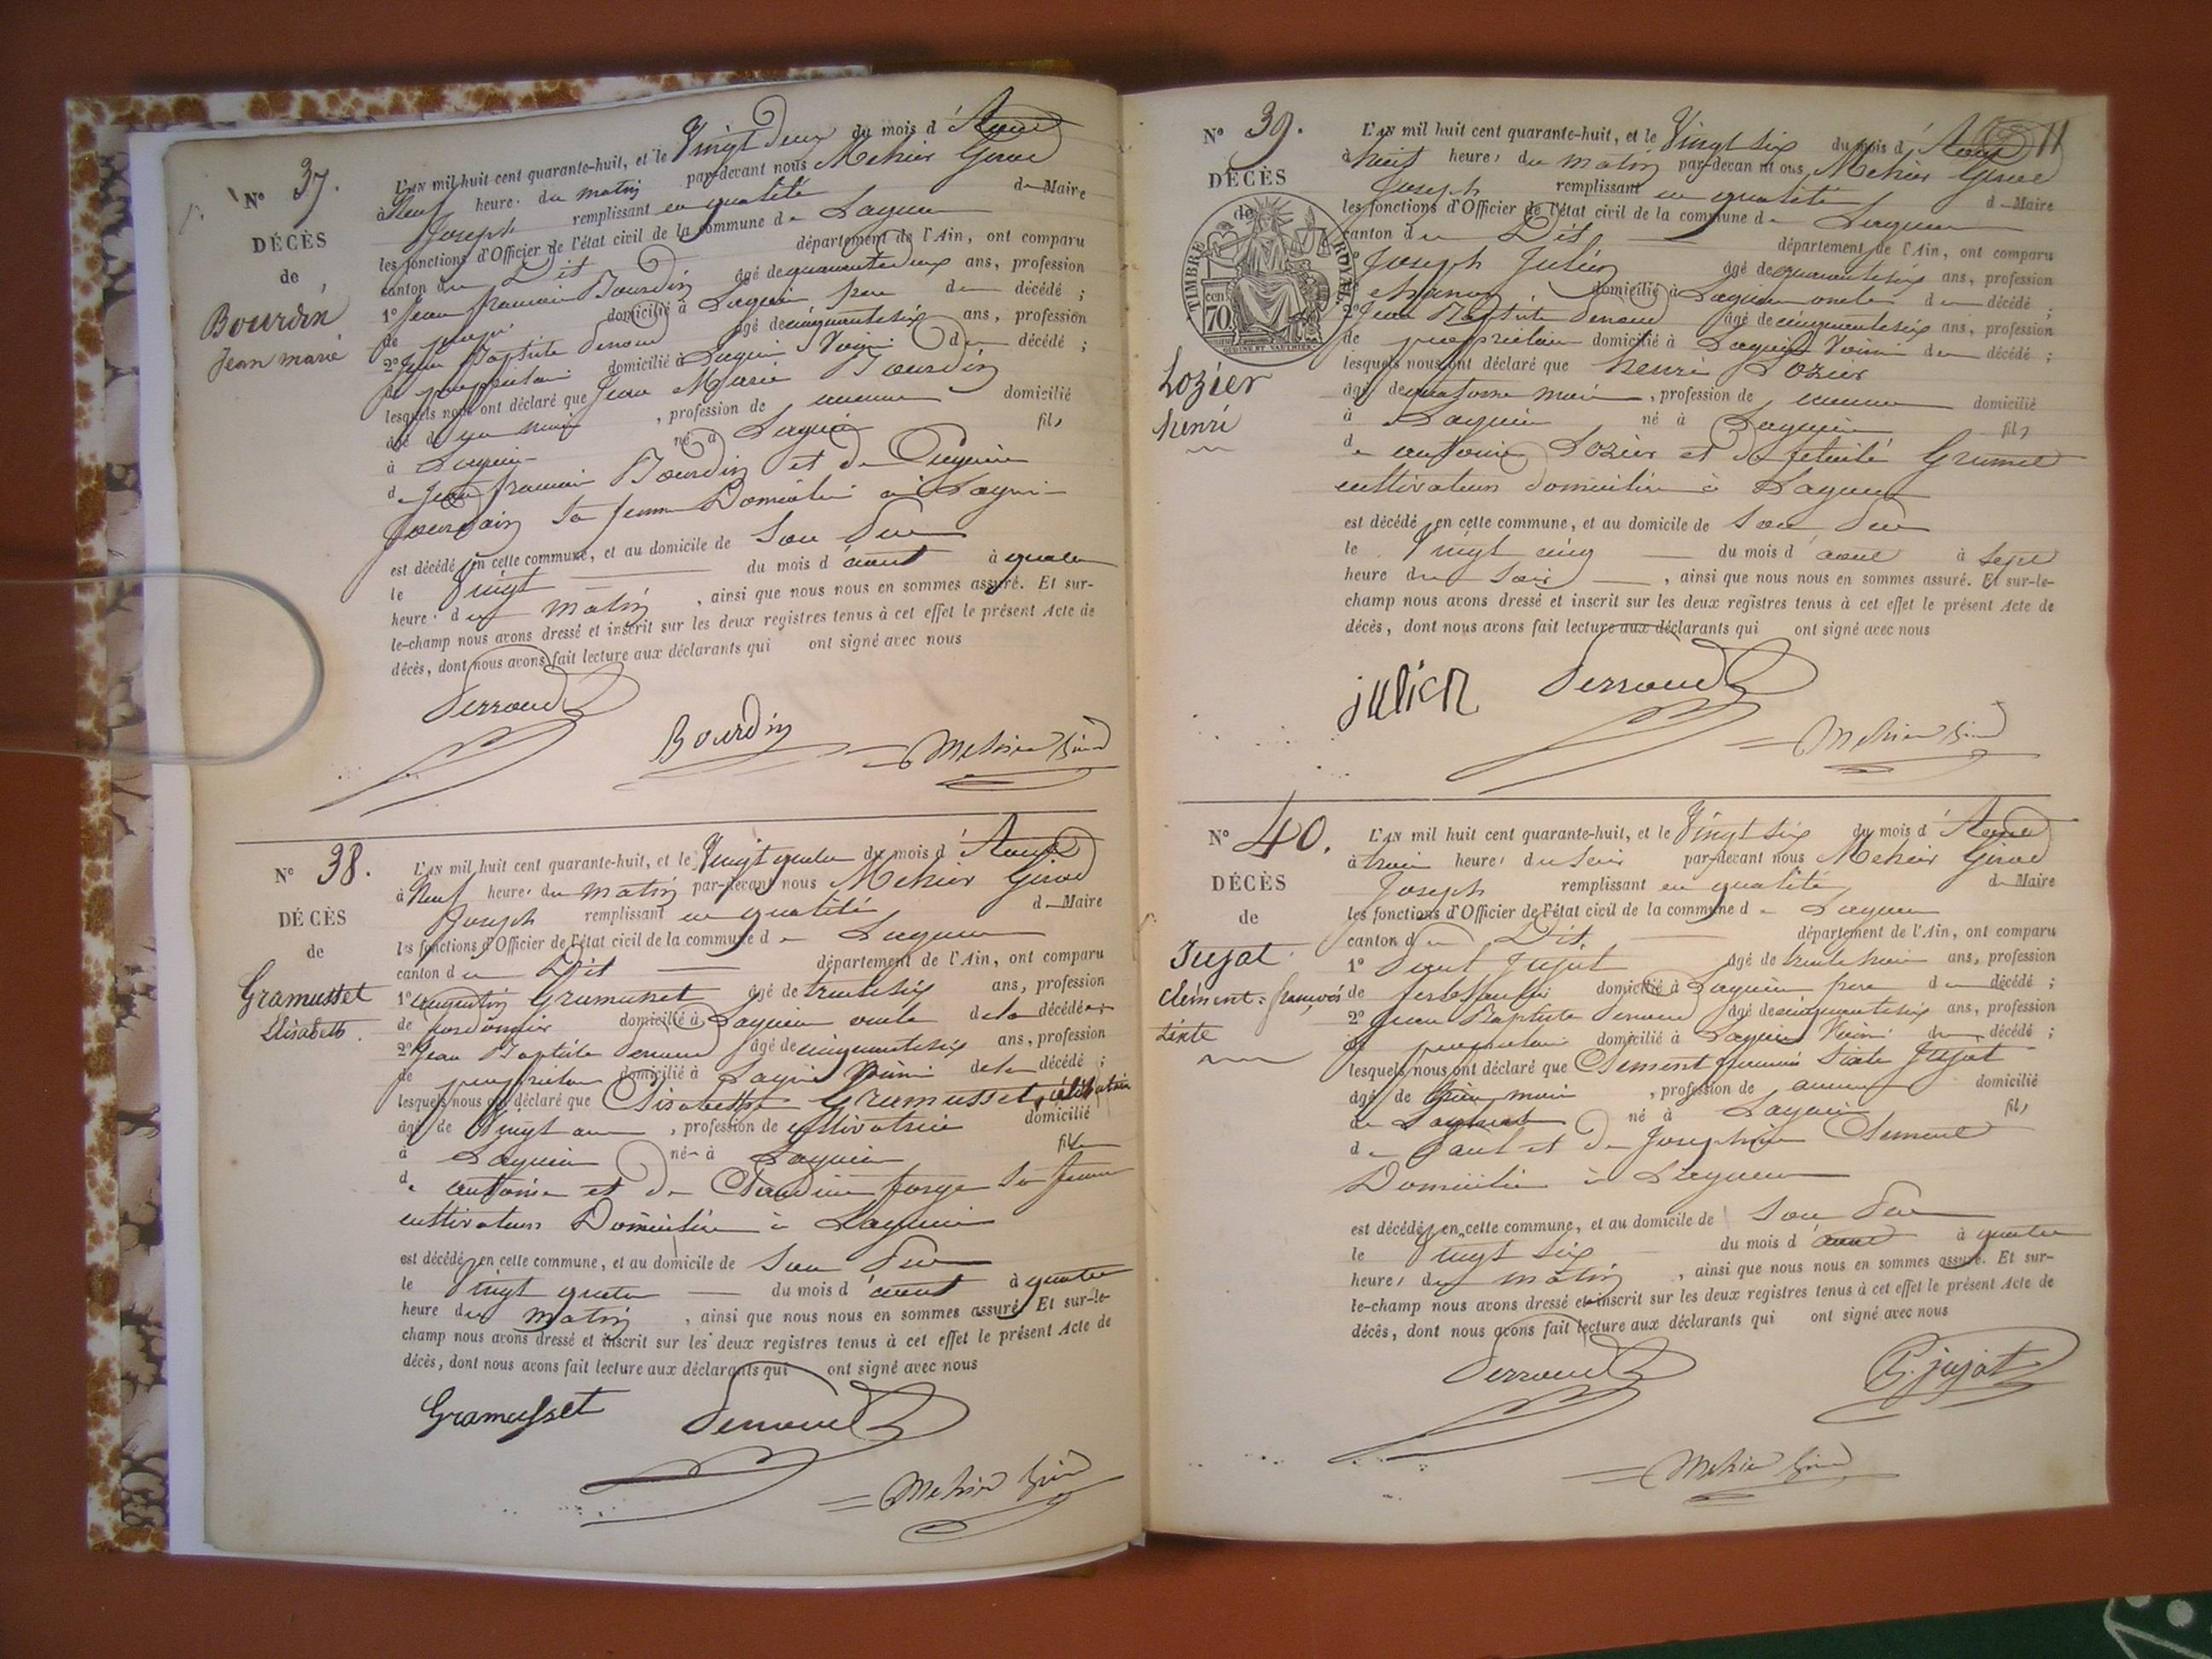 N° 37.
DÉCÈS
de
Bourdin
Jean marie
L'AN mil huit cent quarante-huit, et le Vingt deux du mois d'Aout
à Neuf heure du matin par-devant nous Mehier Girod
Joseph remplissant en qualité de Maire
les fonctions d'Officier de l'état civil de la commune de Lagnieu
canton du Dit département de l'Ain, ont comparu
1° Jean francois Bourdin âgé de quarante deux ans, profession
de domicilié à Lagnieu pere du décédé ;
2° Jean Baptiste Derroud âgé de cinquante six ans, profession
de proprietaire domicilié à Lagnieu Voisin du décédé ;
lesquels nous ont déclaré que Jean Marie Bourdin
âgé de un mois , profession de domicilié
à Lagnieu né à Lagnieu fils
de Jean francois Bourdin et de
Jourdain sa femme Domiciliés à Lagnieu
est décédé en cette commune, et au domicile de Son Pere
le Vingt du mois d'aout à quatre
heure du matin , ainsi que nous nous en sommes assuré. Et sur-
le-champ nous avons dressé et inscrit sur les deux registres tenus à cet effet le présent Acte de
décès, dont nous avons fait lecture aux déclarants qui ont signé avec nous
Derroud
Bourdin
Mehier Girod
N° 38.
DÉCÈS
de
Gramusset
Elisabeth.
L'AN mil huit cent quarante-huit, et le Vingt quatre du mois d'Aout
à Neuf heure du matin par-devant nous Mehier Girod
Joseph remplissant en qualité de Maire
les fonctions d'Officier de l'état civil de la commune de Lagnieu
canton du Dit département de l'Ain, ont comparu
1° augustin Gramusset âgé de trente six ans, profession
de cordonnier domicilié à Lagnieu oncle de la décédée
2° Jean Baptiste Derroud âgé de cinquante six ans, profession
de proprietaire domicilié à Lagnieu Voisin de la décédé ;
lesquels nous ont déclaré que Elisabeth Gramusset, célibataire
âgé de Vingt ans , profession de cultivatrice domicilié
à Lagnieu née à Lagnieu fille
de antoine et de Claudine forge Sa femme
cultivateurs Domiciliés à Lagnieu
est décédé en cette commune, et au domicile de Son Pere
le Vingt quatre du mois d'aout à quatre
heure du matin , ainsi que nous nous en sommes assuré. Et sur-le-
champ nous avons dressé et inscrit sur les deux registres tenus à cet effet le présent Acte de
décès, dont nous avons fait lecture aux déclarants qui ont signé avec nous
Gramusset Derroud
Mehier Girod
11
N° 39.
DÉCÈS
de
TIMBRE ROYAL
70 cen
Lozier
henri
L'AN mil huit cent quarante-huit, et le Vingt six du mois d'Aout
à huit heure du matin par-devant nous Mehier Girod
Joseph remplissant en qualité de Maire
les fonctions d'Officier de l'état civil de la commune de Lagnieu
canton du Dit département de l'Ain, ont comparu
1° Joseph Julien âgé de quarante six ans, profession
domicilié à Lagnieu oncle du décédé ;
2° Jean Baptiste Derroud âgé de cinquante six ans, profession
de proprietaire domicilié à Lagnieu Voisin du décédé ;
lesquels nous ont déclaré que henri Lozier
âgé de quatorze mois , profession de domicilié
à Lagnieu né à Lagnieu fils
de antoine Lozier et de felicité
cultivateurs domiciliés à Lagnieu
est décédé en cette commune, et au domicile de Son Pere
le Vingt cinq du mois d'aout à Sept
heure du Soir , ainsi que nous nous en sommes assuré. Et sur-le-
champ nous avons dressé et inscrit sur les deux registres tenus à cet effet le présent Acte de
décès, dont nous avons fait lecture aux déclarants qui ont signé avec nous
julien Derroud
Mehier Girod
N° 40.
DÉCÈS
de
Jujat
clément-françois
sixte
L'AN mil huit cent quarante-huit, et le Vingt six du mois d'Aout
à trois heure du Soir par-devant nous Mehier Girod
Joseph remplissant en qualité de Maire
les fonctions d'Officier de l'état civil de la commune de Lagnieu
canton du Dit département de l'Ain, ont comparu
1° Paul Jujat âgé de trente trois ans, profession
de ferblantier domicilié à Lagnieu pere du décédé ;
2° Jean Baptiste Derroud âgé de cinquante six ans, profession
de proprietaire domicilié à Lagnieu Voisin du décédé ;
lesquels nous ont déclaré que Clement francois Sixte Jujat
âgé de mois , profession de domicilié
né à Lagnieu fils
de Paul et de Josephine Clement
Domiciliés à Lagnieu
est décédé en cette commune, et au domicile de Son Pere
le Vingt Six du mois d'aout à quatre
heure du matin , ainsi que nous nous en sommes assuré. Et sur-
le-champ nous avons dressé et inscrit sur les deux registres tenus à cet effet le présent Acte de
décès, dont nous avons fait lecture aux déclarants qui ont signé avec nous
Derroud P. jujat
Mehier Girod